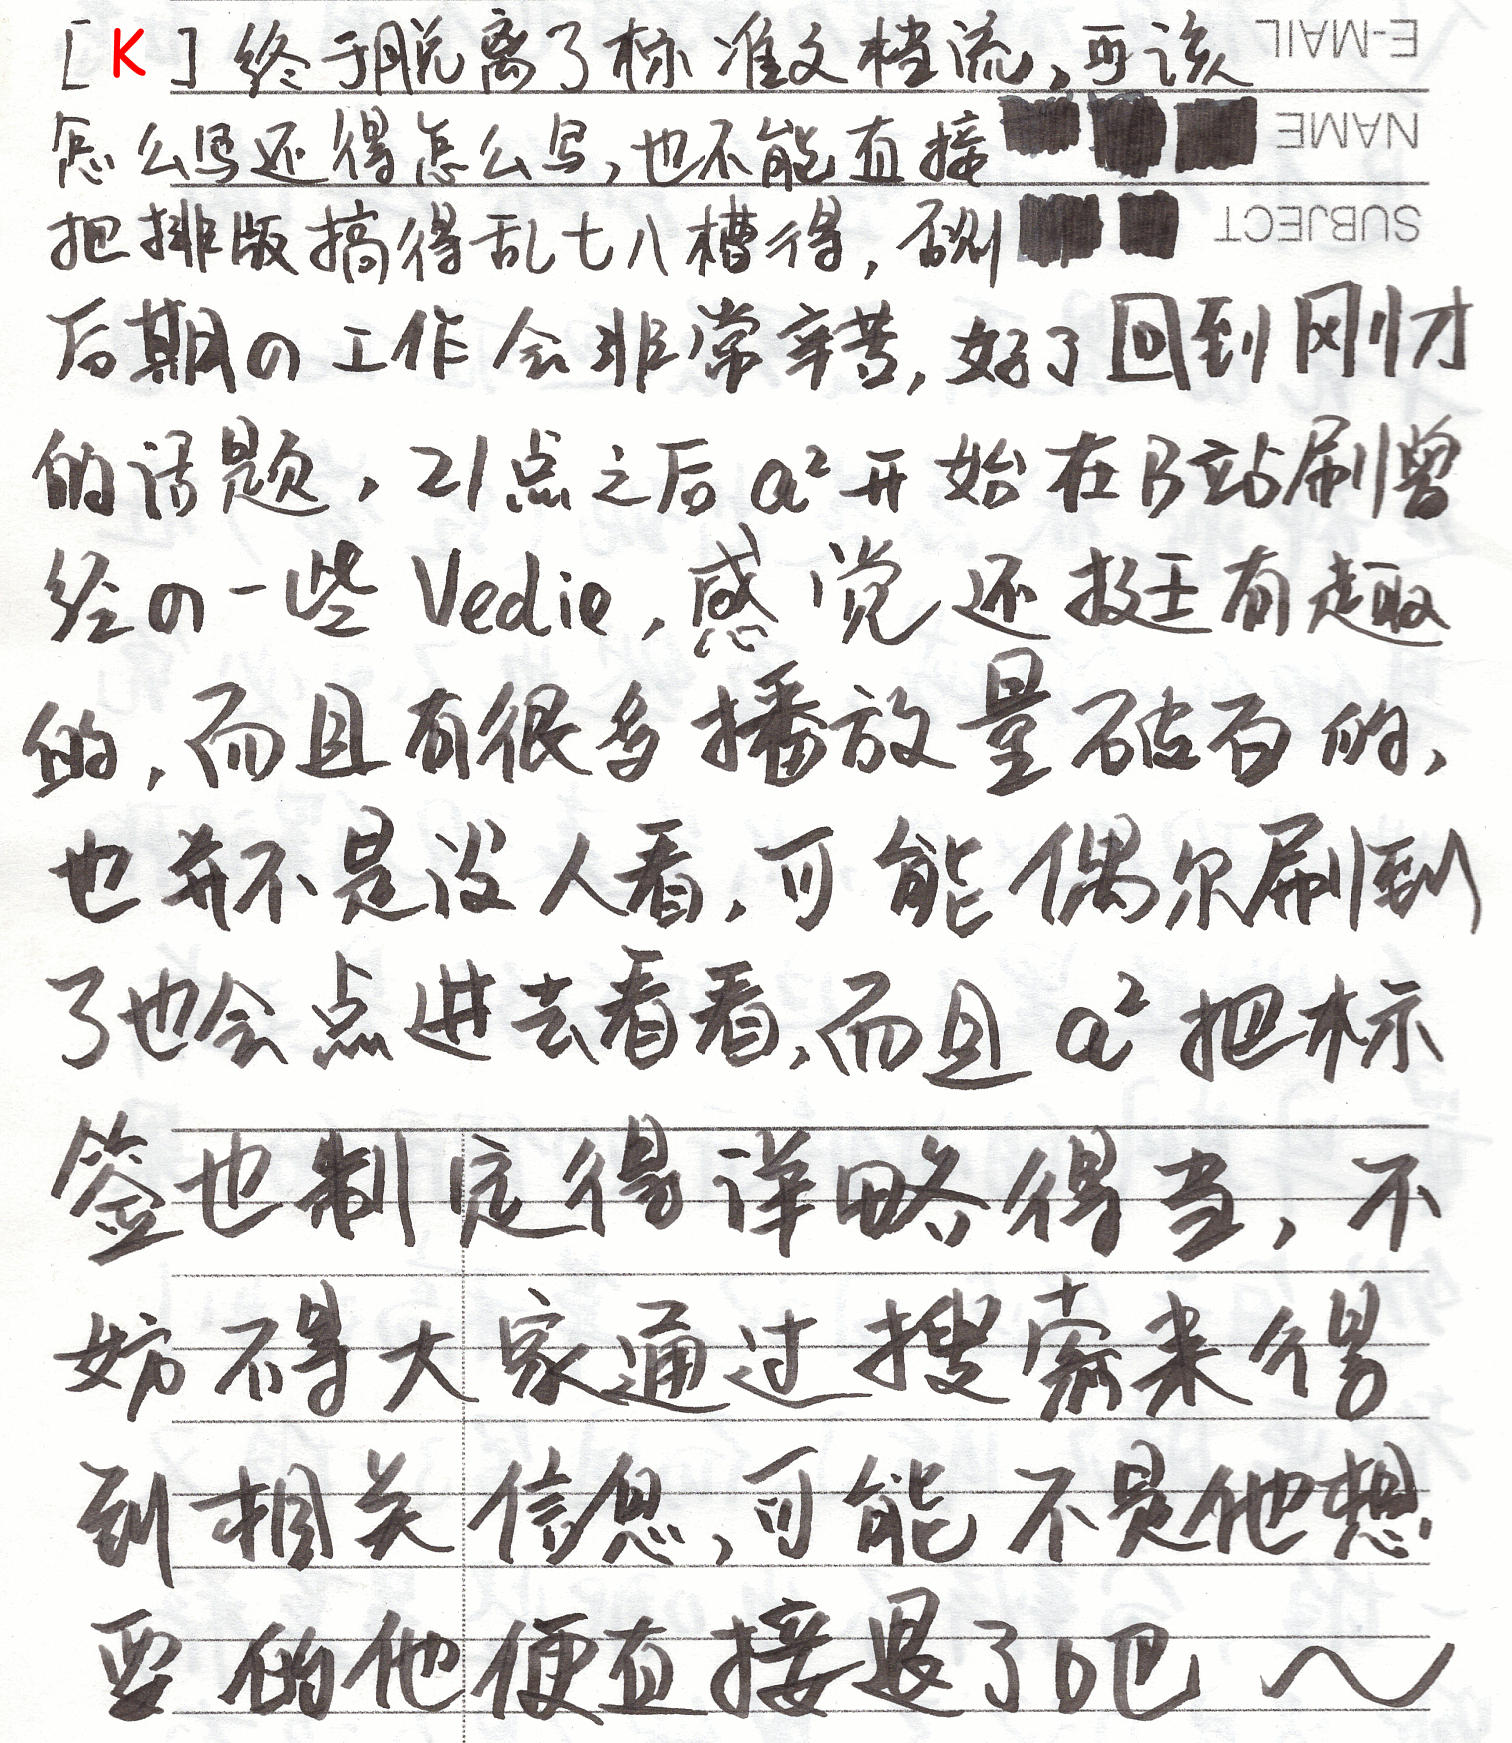 [K] 终于脱离了标准文档流，可该
E-MAIL
怎么写还得怎么写，也不能直接
NAME
把排版搞得乱七八槽得，否则
SUBJECT
后期の工作会非常辛苦，好了回到刚才
的话题，21点之后a²开始在B站刷曾
经の一些Vedio，感觉还挺有趣
的，而且有很多播放量破百的，
也并不是没人看，可能偶尔刷到
了也会点进去看看，而且a²把标
签也制定得详略得当，不
妨碍大家通过搜索来得
到相关信息，可能不是他想
要的他便直接退了吧～